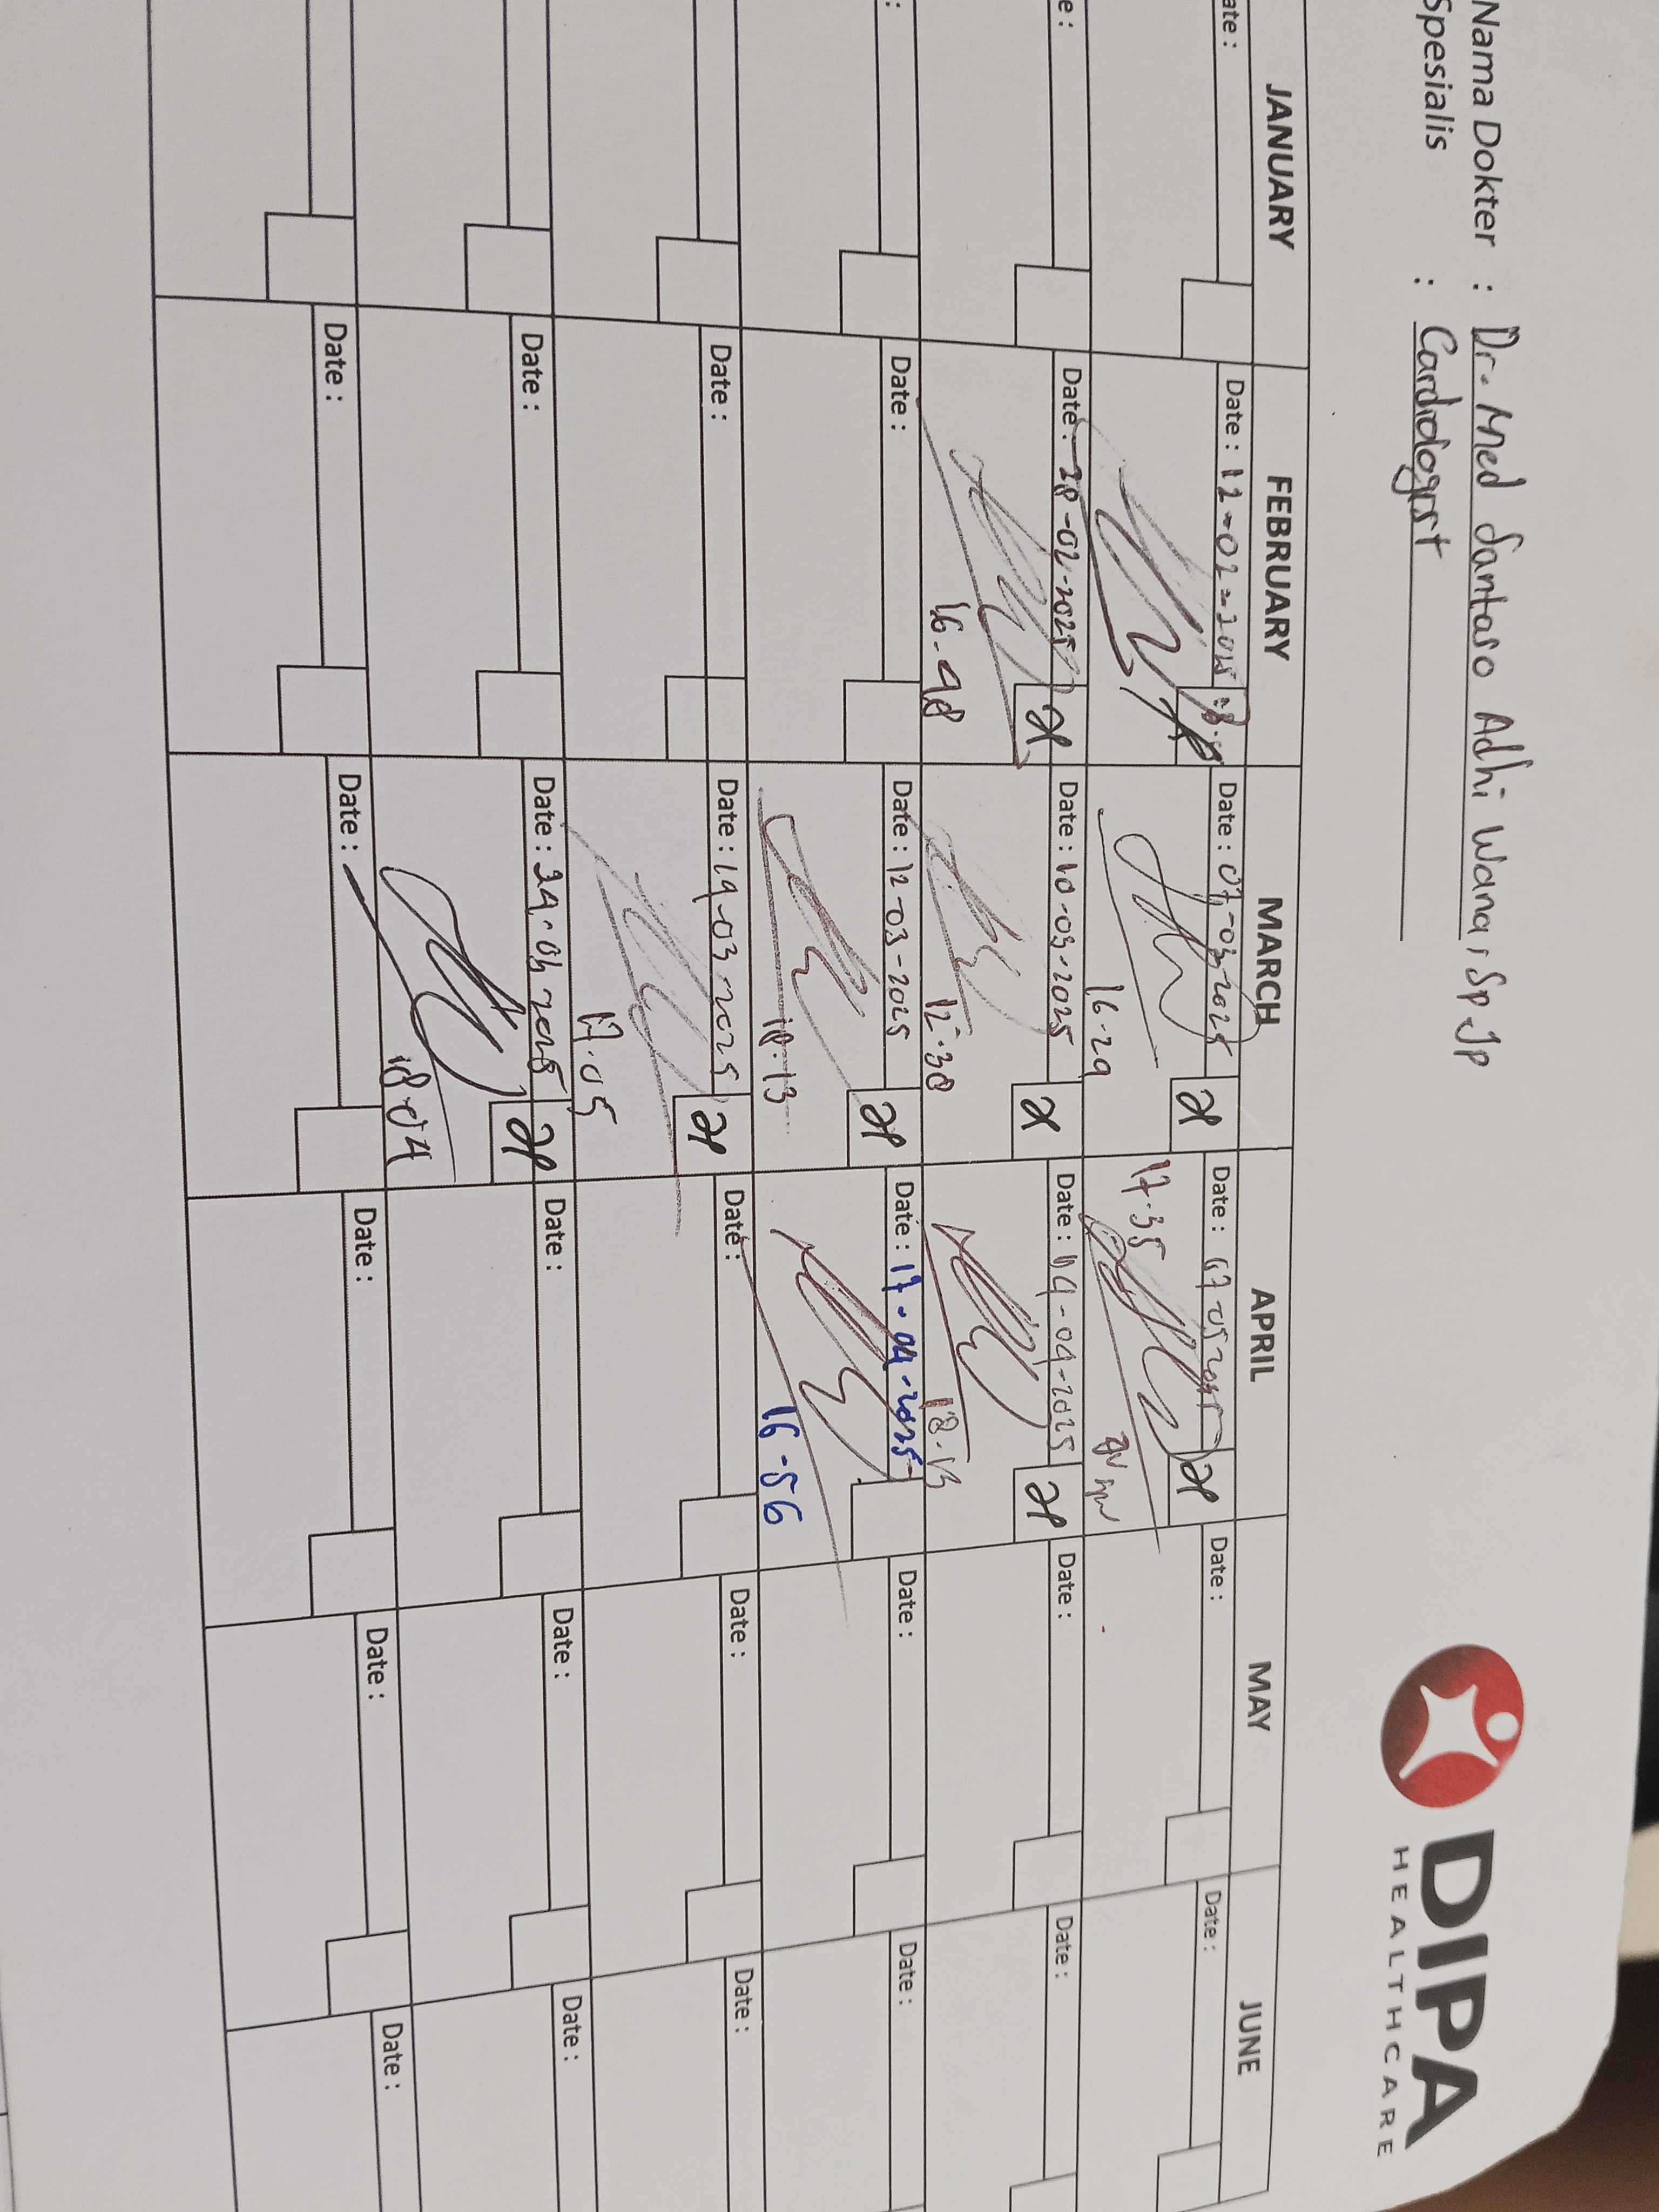 Nama Dokter : Dr. Med Santoso Adhi Wana, Sp JP
Spesialis : Cardiologist
DIPA
HEALTHCARE
JANUARY FEBRUARY MARCH APRIL MAY JUNE
ate : Date : 12-02-2025 Date : 07-03-2025 Date : Date : Date :
16.29 17.35
e : Date : 28-02-2025 Date : 10-03-2025 Date : 09-04-2025 Date : Date :
16-48 12.38 18.13
: Date : Date : 12-03-2025 Date : 17-04-2025 Date : Date :
18.13 16-56
Date : Date : 19-03-2025 Date : Date : Date :
17.05
Date : Date : 24-03-2025 Date : Date : Date :
18.04
Date : Date : Date : Date : Date :